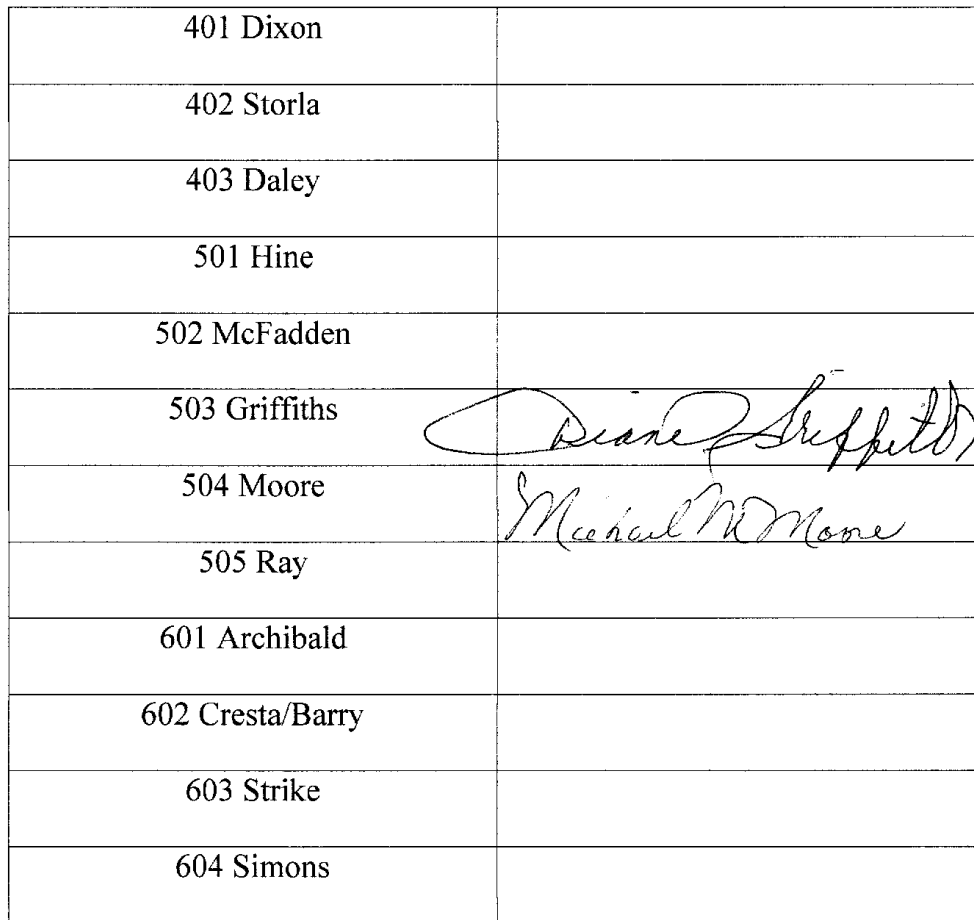 401 Dixon
402 Storla
403 Daley
501 Hine
502 McFadden
503 Griffiths Diane Griffith
504 Moore Michael M Moore
505 Ray
601 Archibald
602 Cresta/Barry
603 Strike
604 Simons